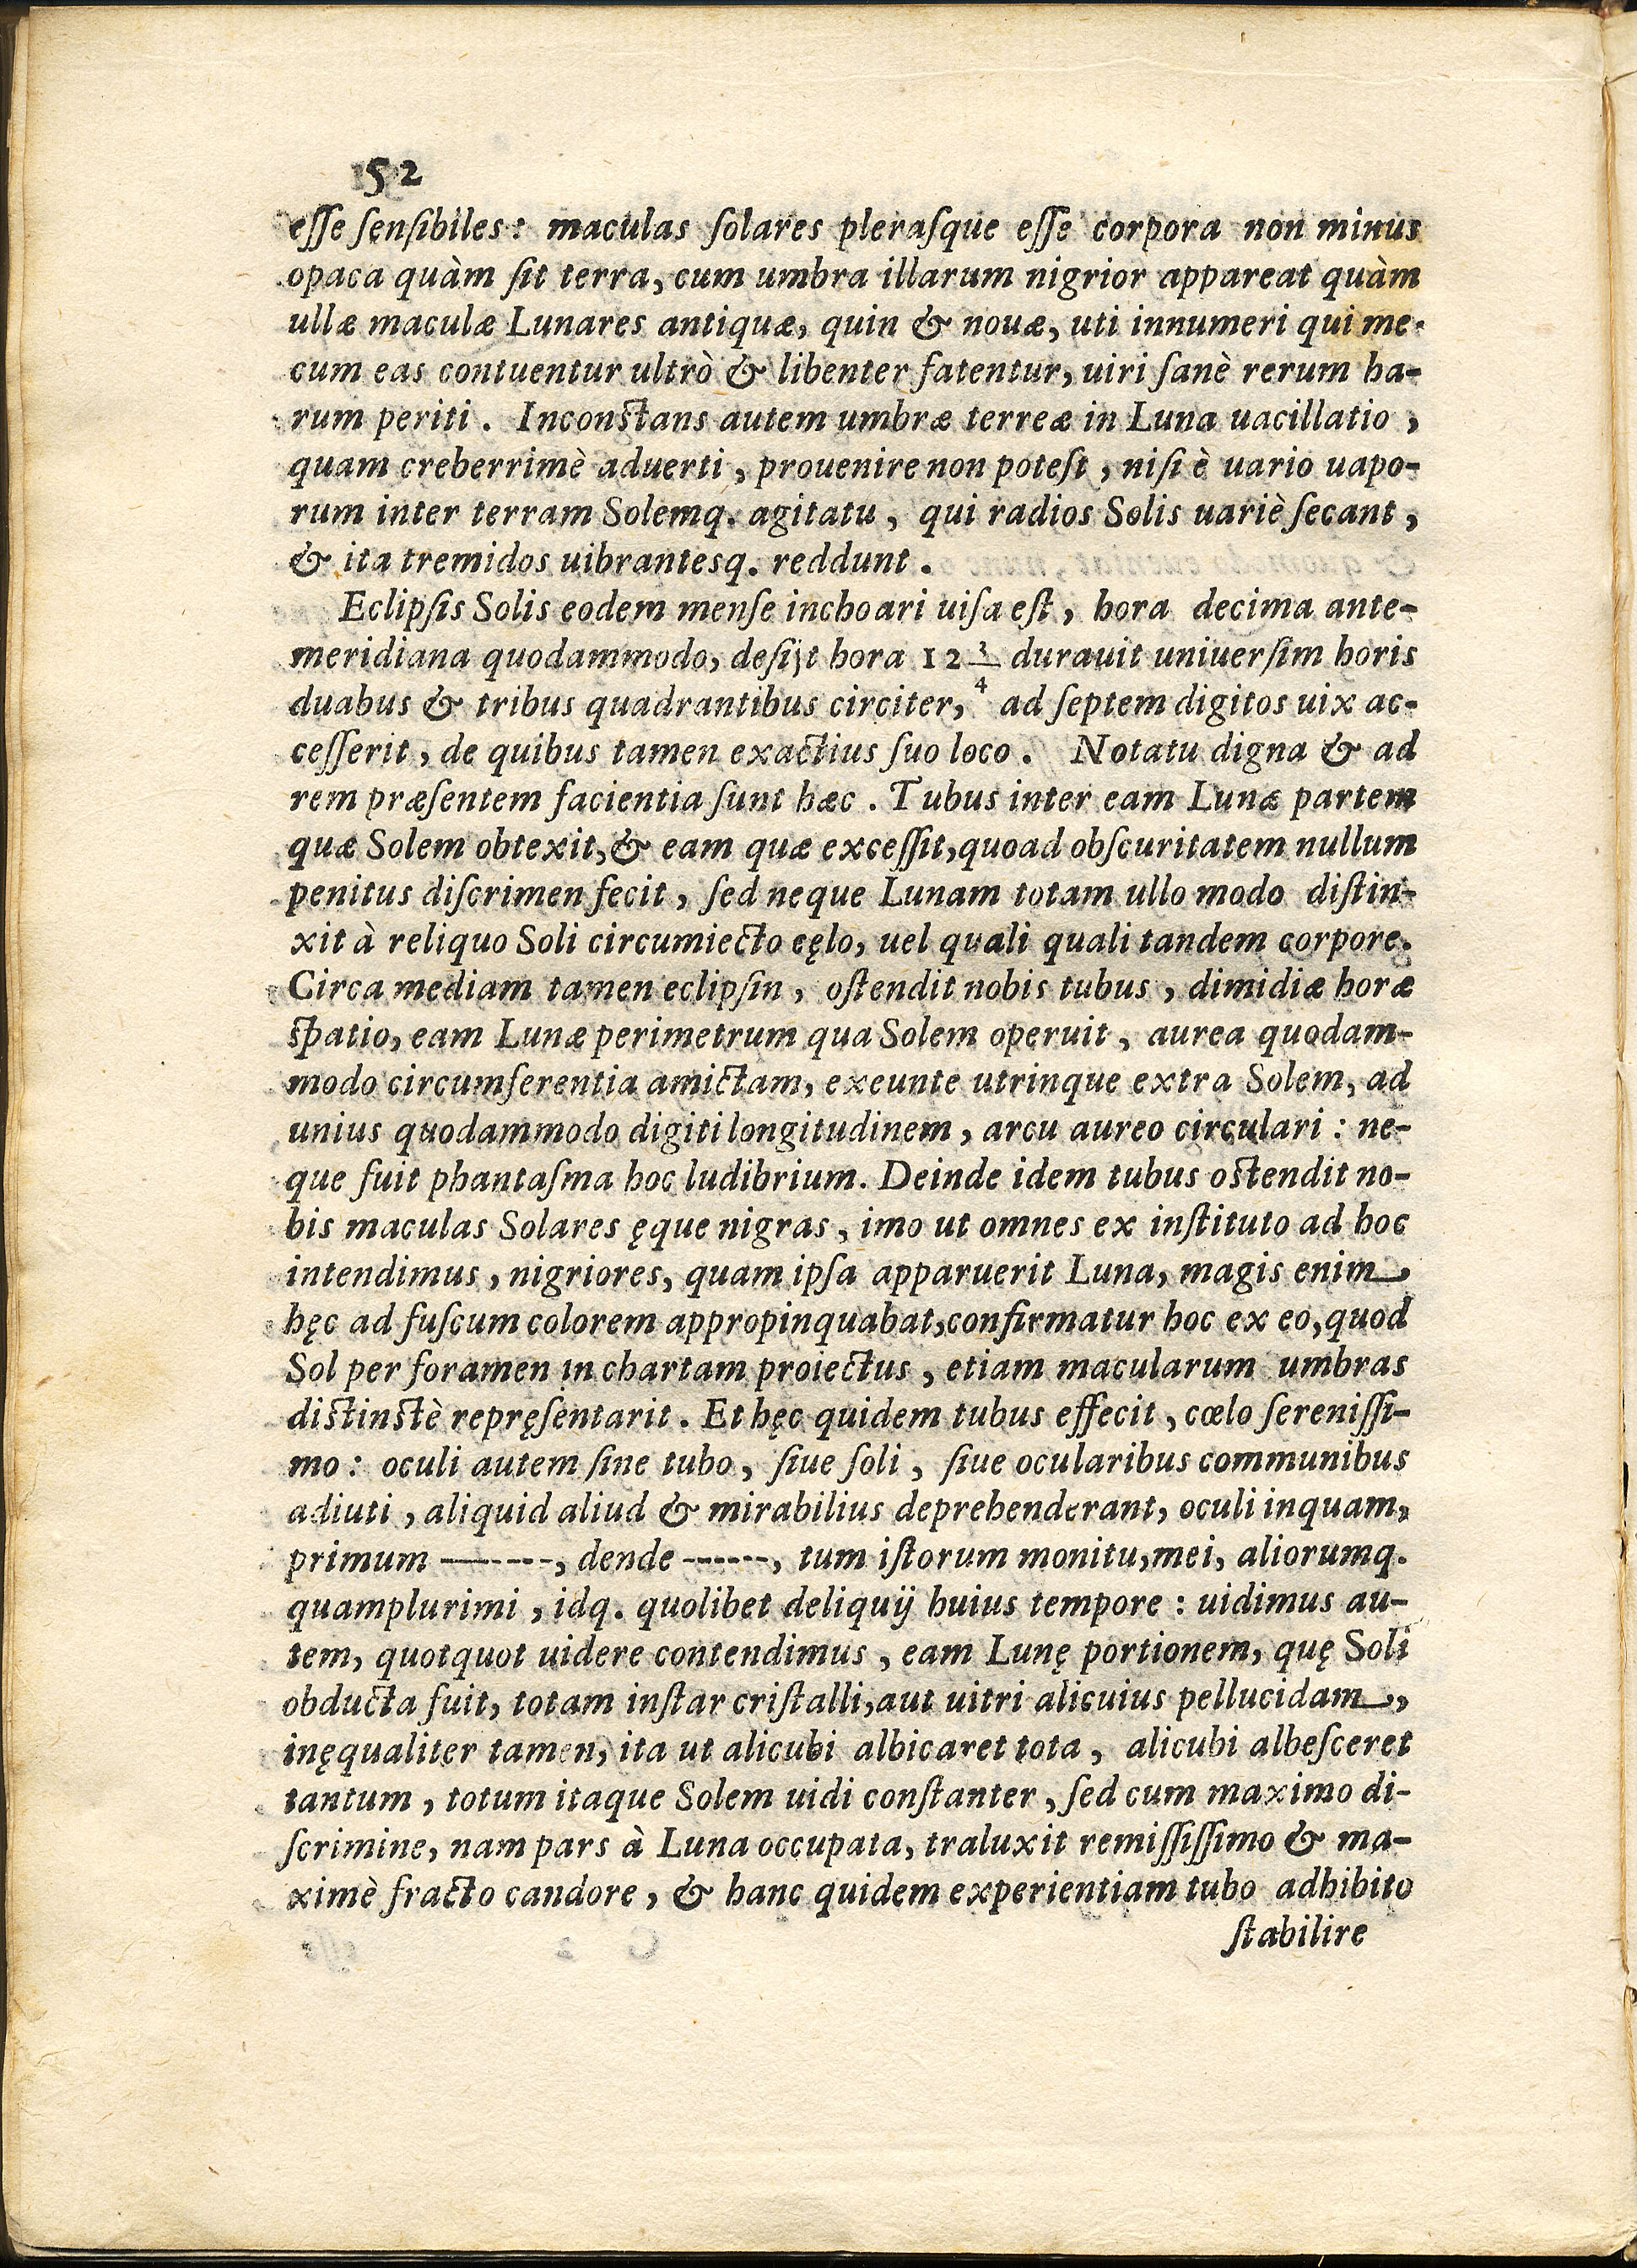 152
eſſe ſenſibiles: maculas ſolares pleraſque eſſe corpora non minus
opaca quàm ſit terra, cum umbra illarum nigrior appareat quàm
ullæ maculæ Lunares antiquæ, quin & nouæ, uti innumeri qui me-
cum eas contuentur ultrò & libenter fatentur, uiri ſanè rerum ha-
rum periti. Inconſtans autem umbræ terreæ in Luna uacillatio,
quam creberrimè aduerti, prouenire non poteſt, niſi è uario uapo-
rum inter terram Solemq. agitatu, qui radios Solis uariè ſecant,
& ita tremidos uibrantesq. reddunt.
Eclipſis Solis eodem menſe inchoari uiſa eſt, hora decima ante-
meridiana quodammodo, deſijt hora 12 3/4 durauit uniuerſim horis
duabus & tribus quadrantibus circiter, ad ſeptem digitos uix ac-
ceſſerit, de quibus tamen exactius ſuo loco. Notatu digna & ad
rem præſentem facientia ſunt hæc. Tubus inter eam Lunæ partem
quæ Solem obtexit, & eam quæ exceſſit, quoad obſcuritatem nullum
penitus diſcrimen fecit, ſed neque Lunam totam ullo modo diſtin-
xit à reliquo Soli circumiecto cęlo, uel quali quali tandem corpore.
Circa mediam tamen eclipſin, oſtendit nobis tubus, dimidiæ horæ
ſpatio, eam Lunæ perimetrum qua Solem operuit, aurea quodam-
modo circumferentia amictam, exeunte utrinque extra Solem, ad
unius quodammodo digiti longitudinem, arcu aureo circulari: ne-
que fuit phantaſma hoc ludibrium. Deinde idem tubus oſtendit no-
bis maculas Solares ęque nigras, imo ut omnes ex inſtituto ad hoc
intendimus, nigriores, quam ipſa apparuerit Luna, magis enim
hęc ad fuſcum colorem appropinquabat, confirmatur hoc ex eo, quod
Sol per foramen in chartam proiectus, etiam macularum umbras
diſtinſtè repręſentarit. Et hęc quidem tubus effecit, cœlo ſereniſſi-
mo: oculi autem ſine tubo, ſiue ſoli, ſiue ocularibus communibus
adiuti, aliquid aliud & mirabilius deprehenderant, oculi inquam,
primum -------, dende ------, tum iſtorum monitu, mei, aliorumq.
quamplurimi, idq. quolibet deliquij huius tempore: uidimus au-
tem, quotquot uidere contendimus, eam Lunę portionem, quę Soli
obducta fuit, totam inſtar criſtalli, aut uitri alicuius pellucidam,
inęqualiter tamen, ita ut alicubi albicaret tota, alicubi albeſceret
tantum, totum itaque Solem uidi conſtanter, ſed cum maximo di-
ſcrimine, nam pars à Luna occupata, traluxit remiſſiſſimo & ma-
ximè fracto candore, & hanc quidem experientiam tubo adhibito
ſtabilire